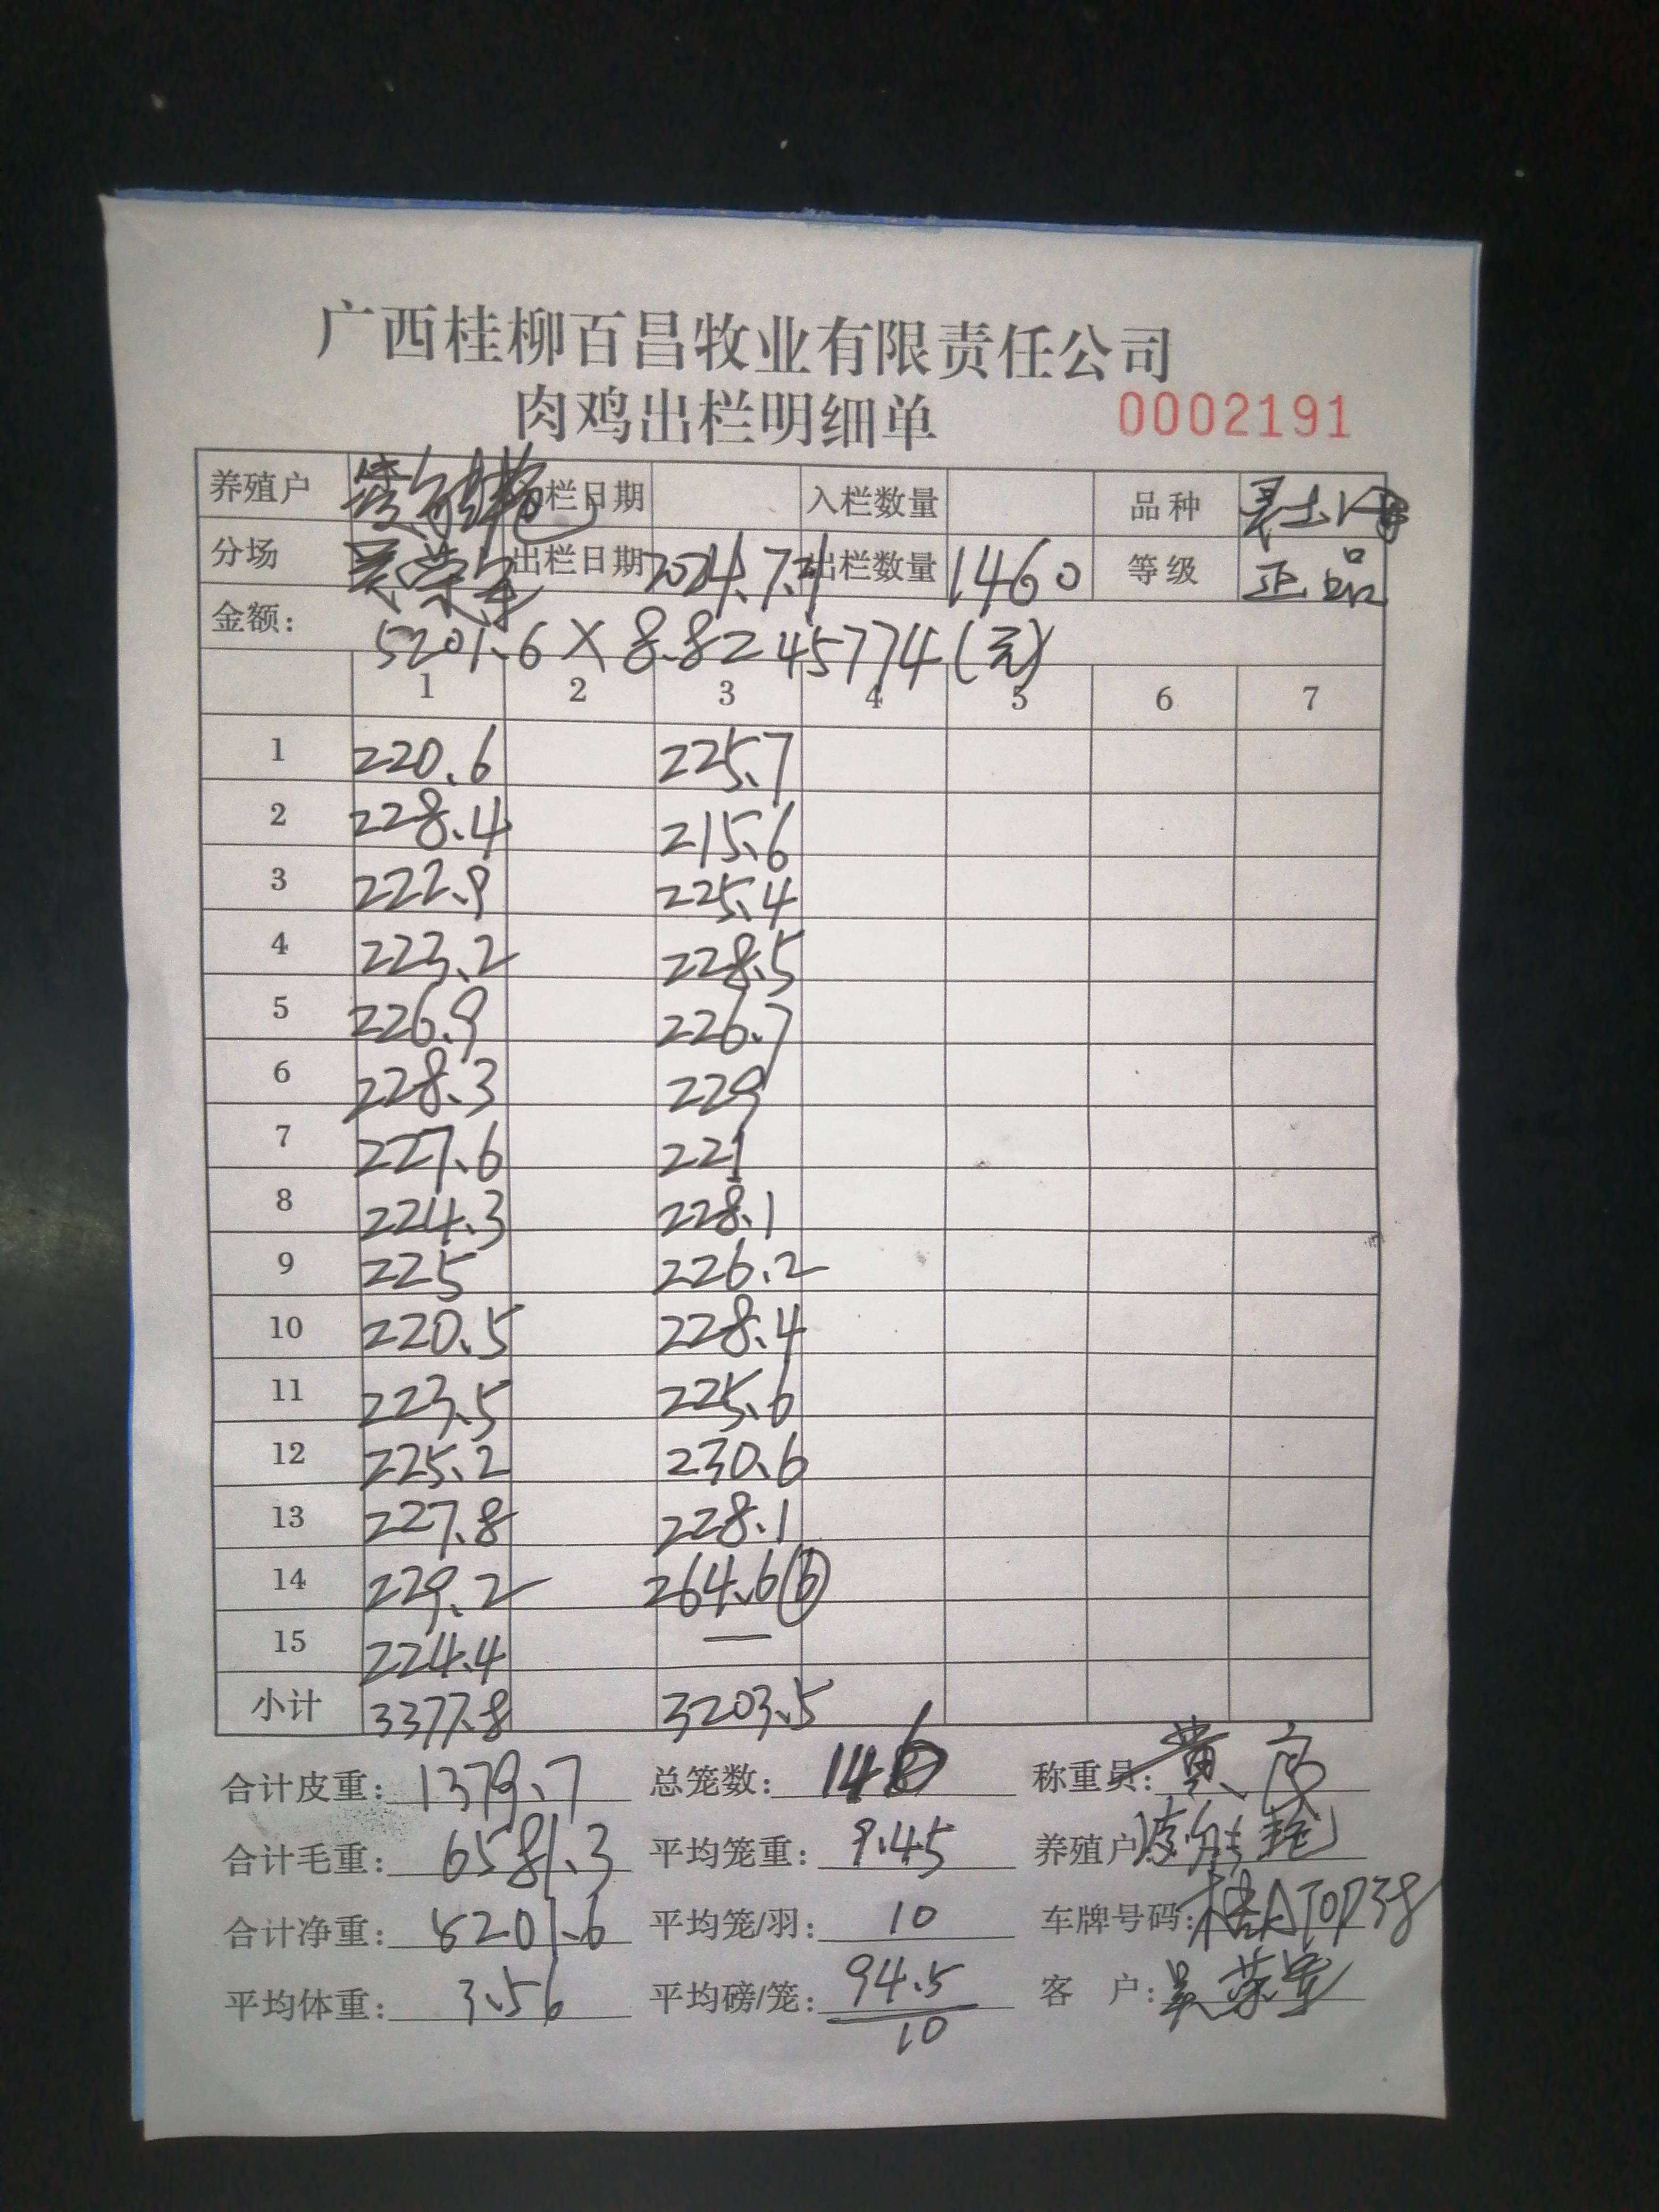 广西桂柳百昌牧业有限责任公司
肉鸡出栏明细单 0002191
养殖户 栏日期 入栏数量 品种
分场 吴荣军 出栏日期 2024.7. 出栏数量 1460 等级 正品
金额: 5201.6×8.8=45774(元)
1 2 3 4 5 6 7
1 220.6 225.7
2 228.4 215.6
3 222.9 225.4
4 223.2 228.5
5 226.9 226.7
6 228.3 229
7 227.6 221
8 224.3 228.1
9 225 226.2
10 220.5 228.4
11 223.5 225.6
12 225.2 230.6
13 227.8 228.1
14 229.2 264.6⑥
15 224.4 —
小计 3377.8 3203.5
合计皮重: 1379.7 总笼数: 146 称重员: 黄
合计毛重: 6581.3 平均笼重: 9.45 养殖户
合计净重: 5201.6 平均笼/羽: 10 车牌号码:
平均体重: 3.56 平均磅/笼: 94.5 客户: 吴荣军
10